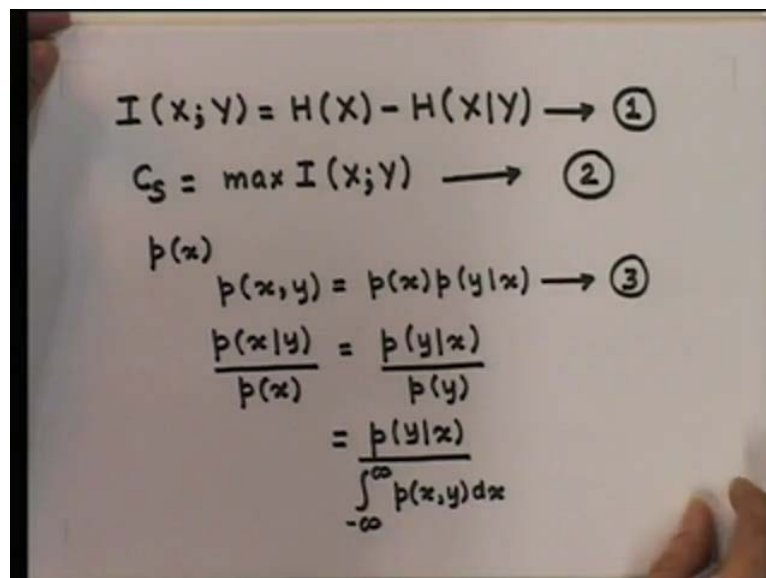 I(X;Y) = H(X) - H(X|Y) → ①
Cs = max I(X;Y) → ②
p(x)
p(x,y) = p(x)p(y|x) → ③
p(x|y)/p(x) = p(y|x)/p(y)
= p(y|x)/∫_{-∞}^{∞} p(x,y)dx